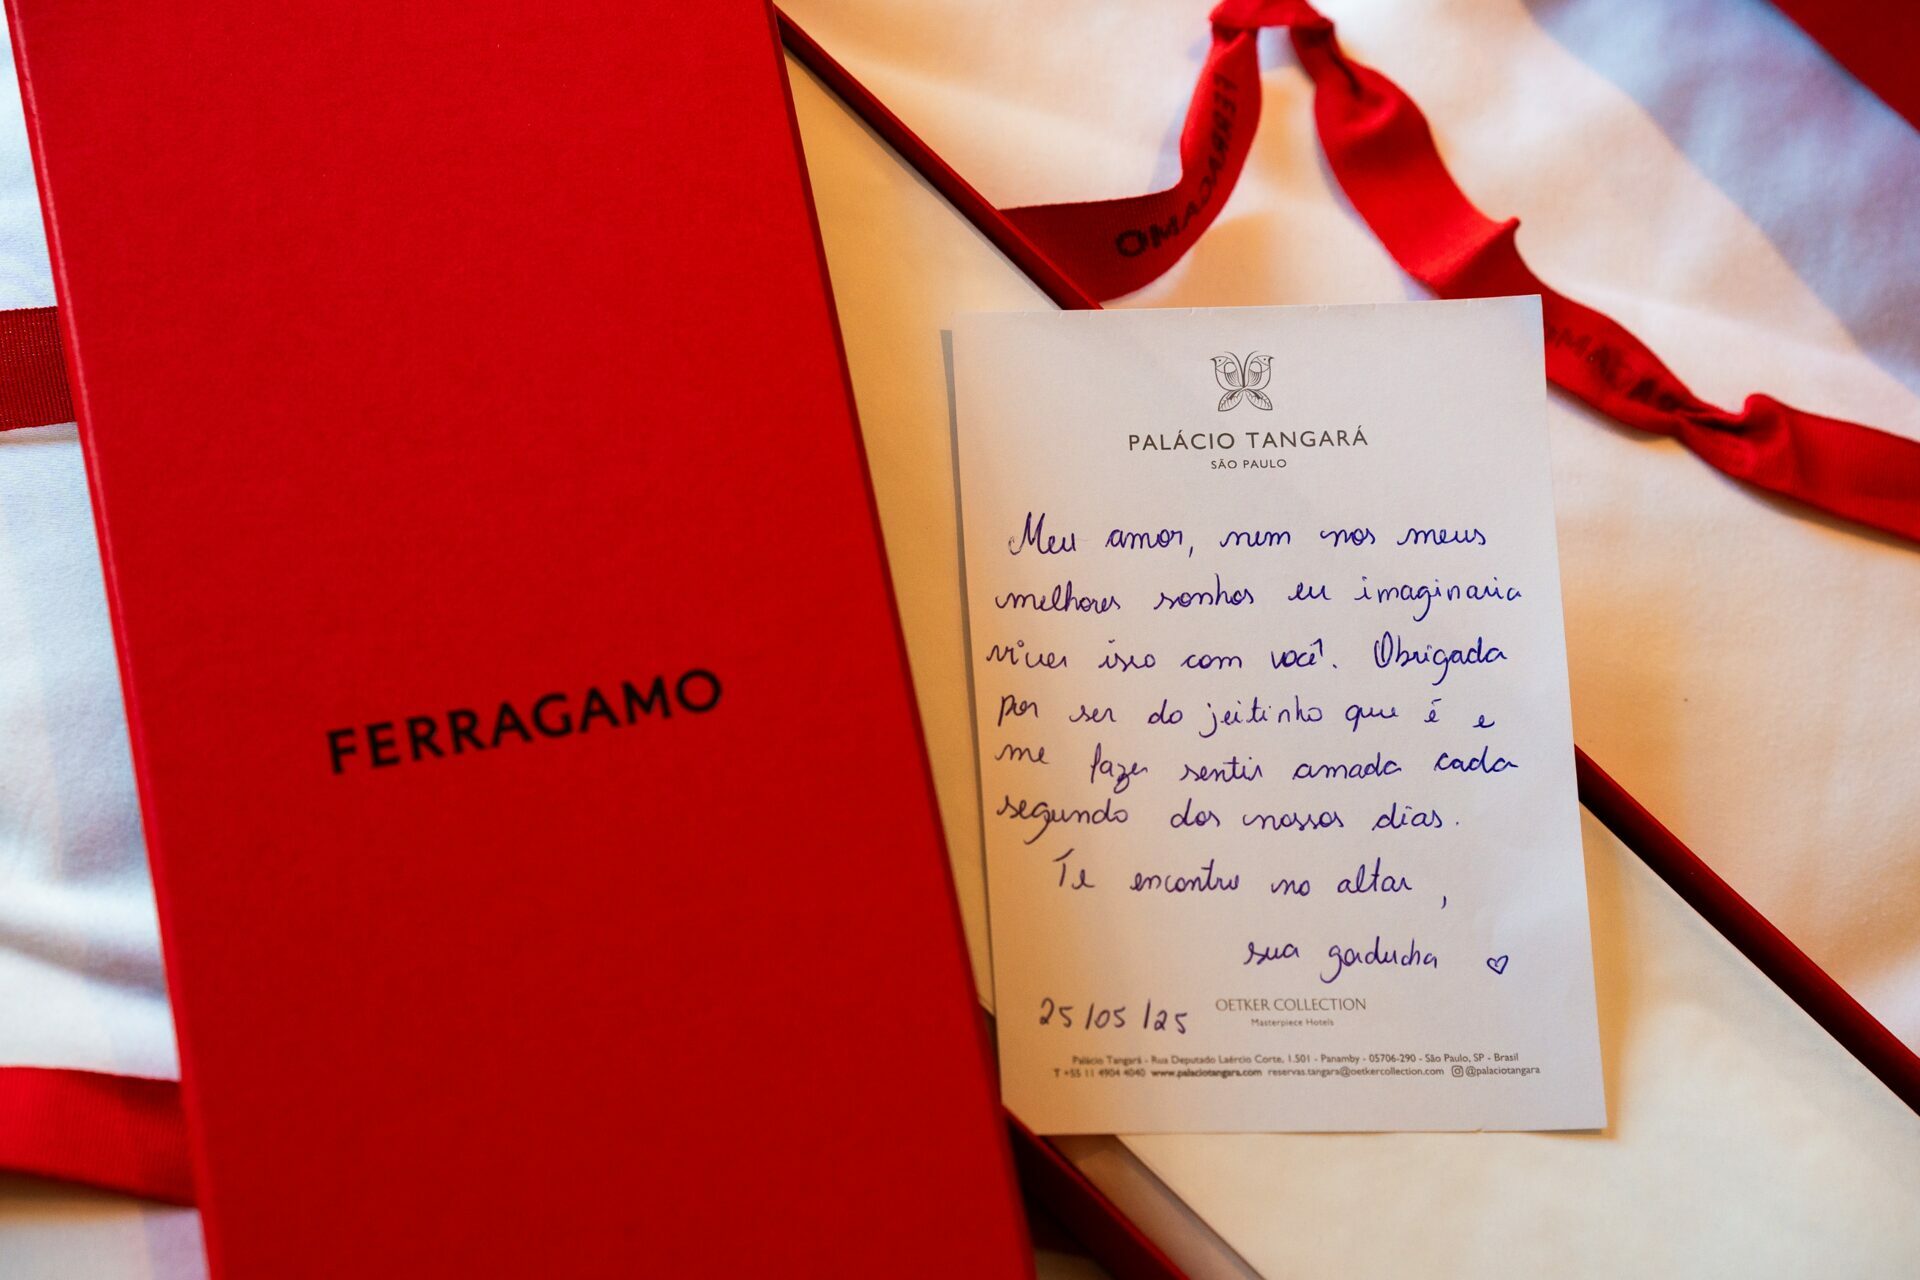 FERRAGAMO
FERRAGAMO
PALÁCIO TANGARÁ
SÃO PAULO
Meu amor, nem nos meus
melhores sonhos eu imaginaria
viver isso com você. Obrigada
por ser do jeitinho que é e
me fazer sentir amada cada
segundo dos nossos dias.
Te encontro no altar,
sua gaducha ♡
25/05/25
OETKER COLLECTION
Masterpiece Hotels
Palácio Tangará - Rua Deputado Laércio Corte, 1.501 - Panamby - 05706-290 - São Paulo, SP - Brasil
T +55 11 4904 4040 www.palaciotangara.com reservas.tangara@oetkercollection.com @palaciotangara